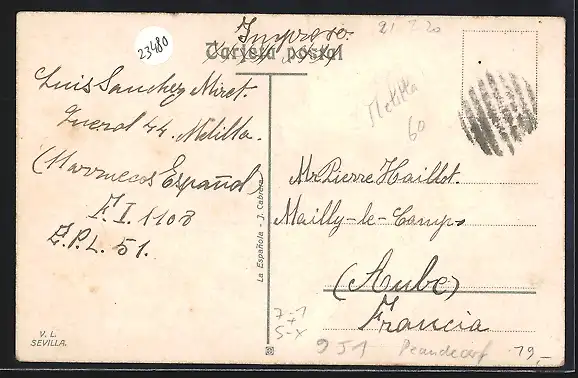 23480
Impreso.
Tarjeta postal
21 7 20
Luis Sanchez Miret.
44. Melilla.
(Marruecos Español)
F.I. 1108
E.P.L. 51.
Melilla
60
Mr Pierre Haillot.
Mailly-le-Camp
(Aube)
Francia
La Española - J. Cabrera
V. L.
SEVILLA.
7-1
S-X
951
19,-